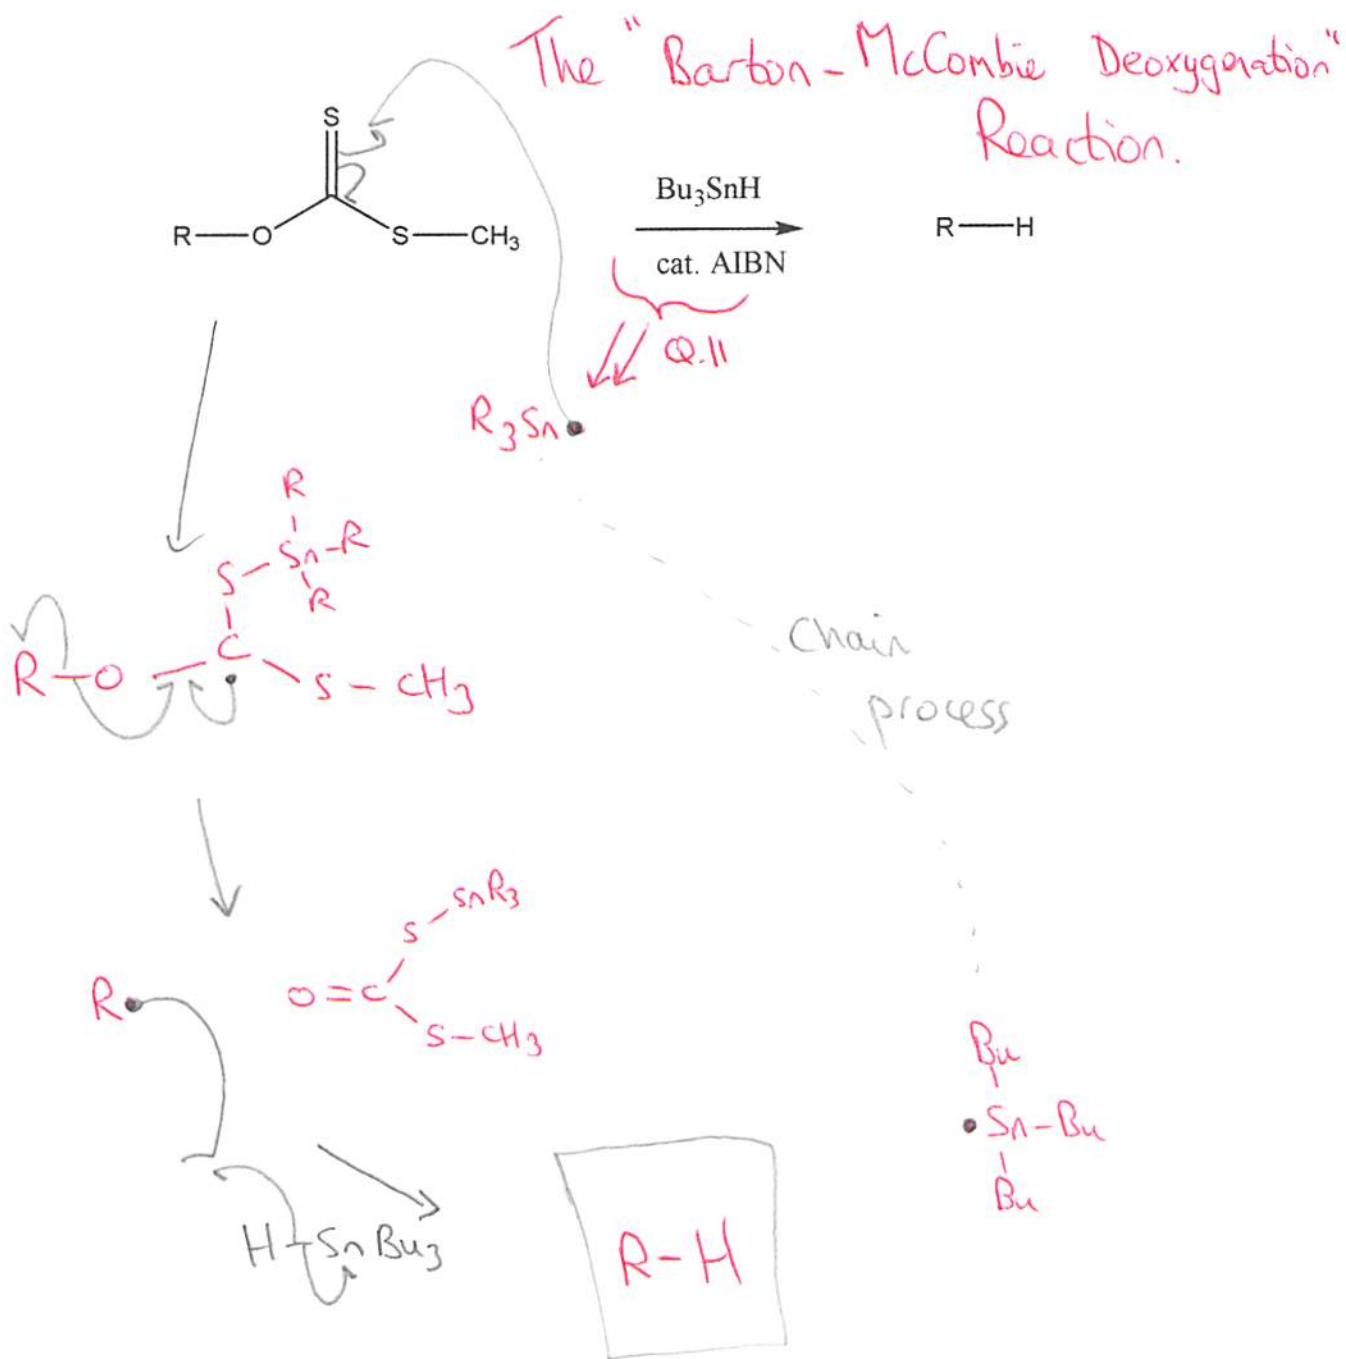 The "Barton-McCombie Deoxygenation"
Reaction.
S
R-O
S-CH3
Bu3SnH
cat. AIBN
R-H
Q.11
R3Sn•
R
S-Sn-R
R
C
R-O
S-CH3
Chain
process
SnR3
S
R•
O=C
S-CH3
Bu
•Sn-Bu
Bu
H-SnBu3
R-H